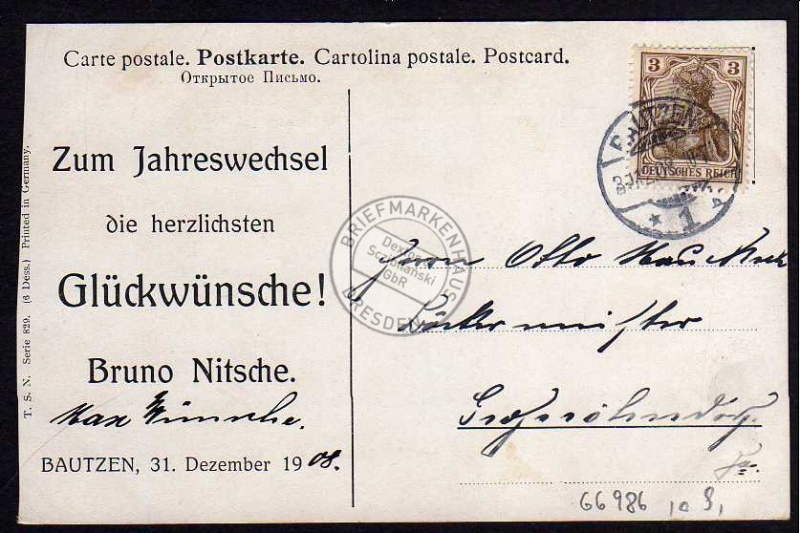 Carte postale. Postkarte. Cartolina postale. Postcard.
Открытое Письмо.
3 3
DEUTSCHES REICH
BAUTZEN
1
Zum Jahreswechsel
die herzlichsten
Glückwünsche!
Bruno Nitsche.
Max Wünsche.
BAUTZEN, 31. Dezember 1908.
T. S. N. Serie 829. (6 Dess.) Printed in Germany.
Herrn Otto
Bäckermeister
Großröhrsdorf
BRIEFMARKENHAUS
GbR
DRESDEN
66986